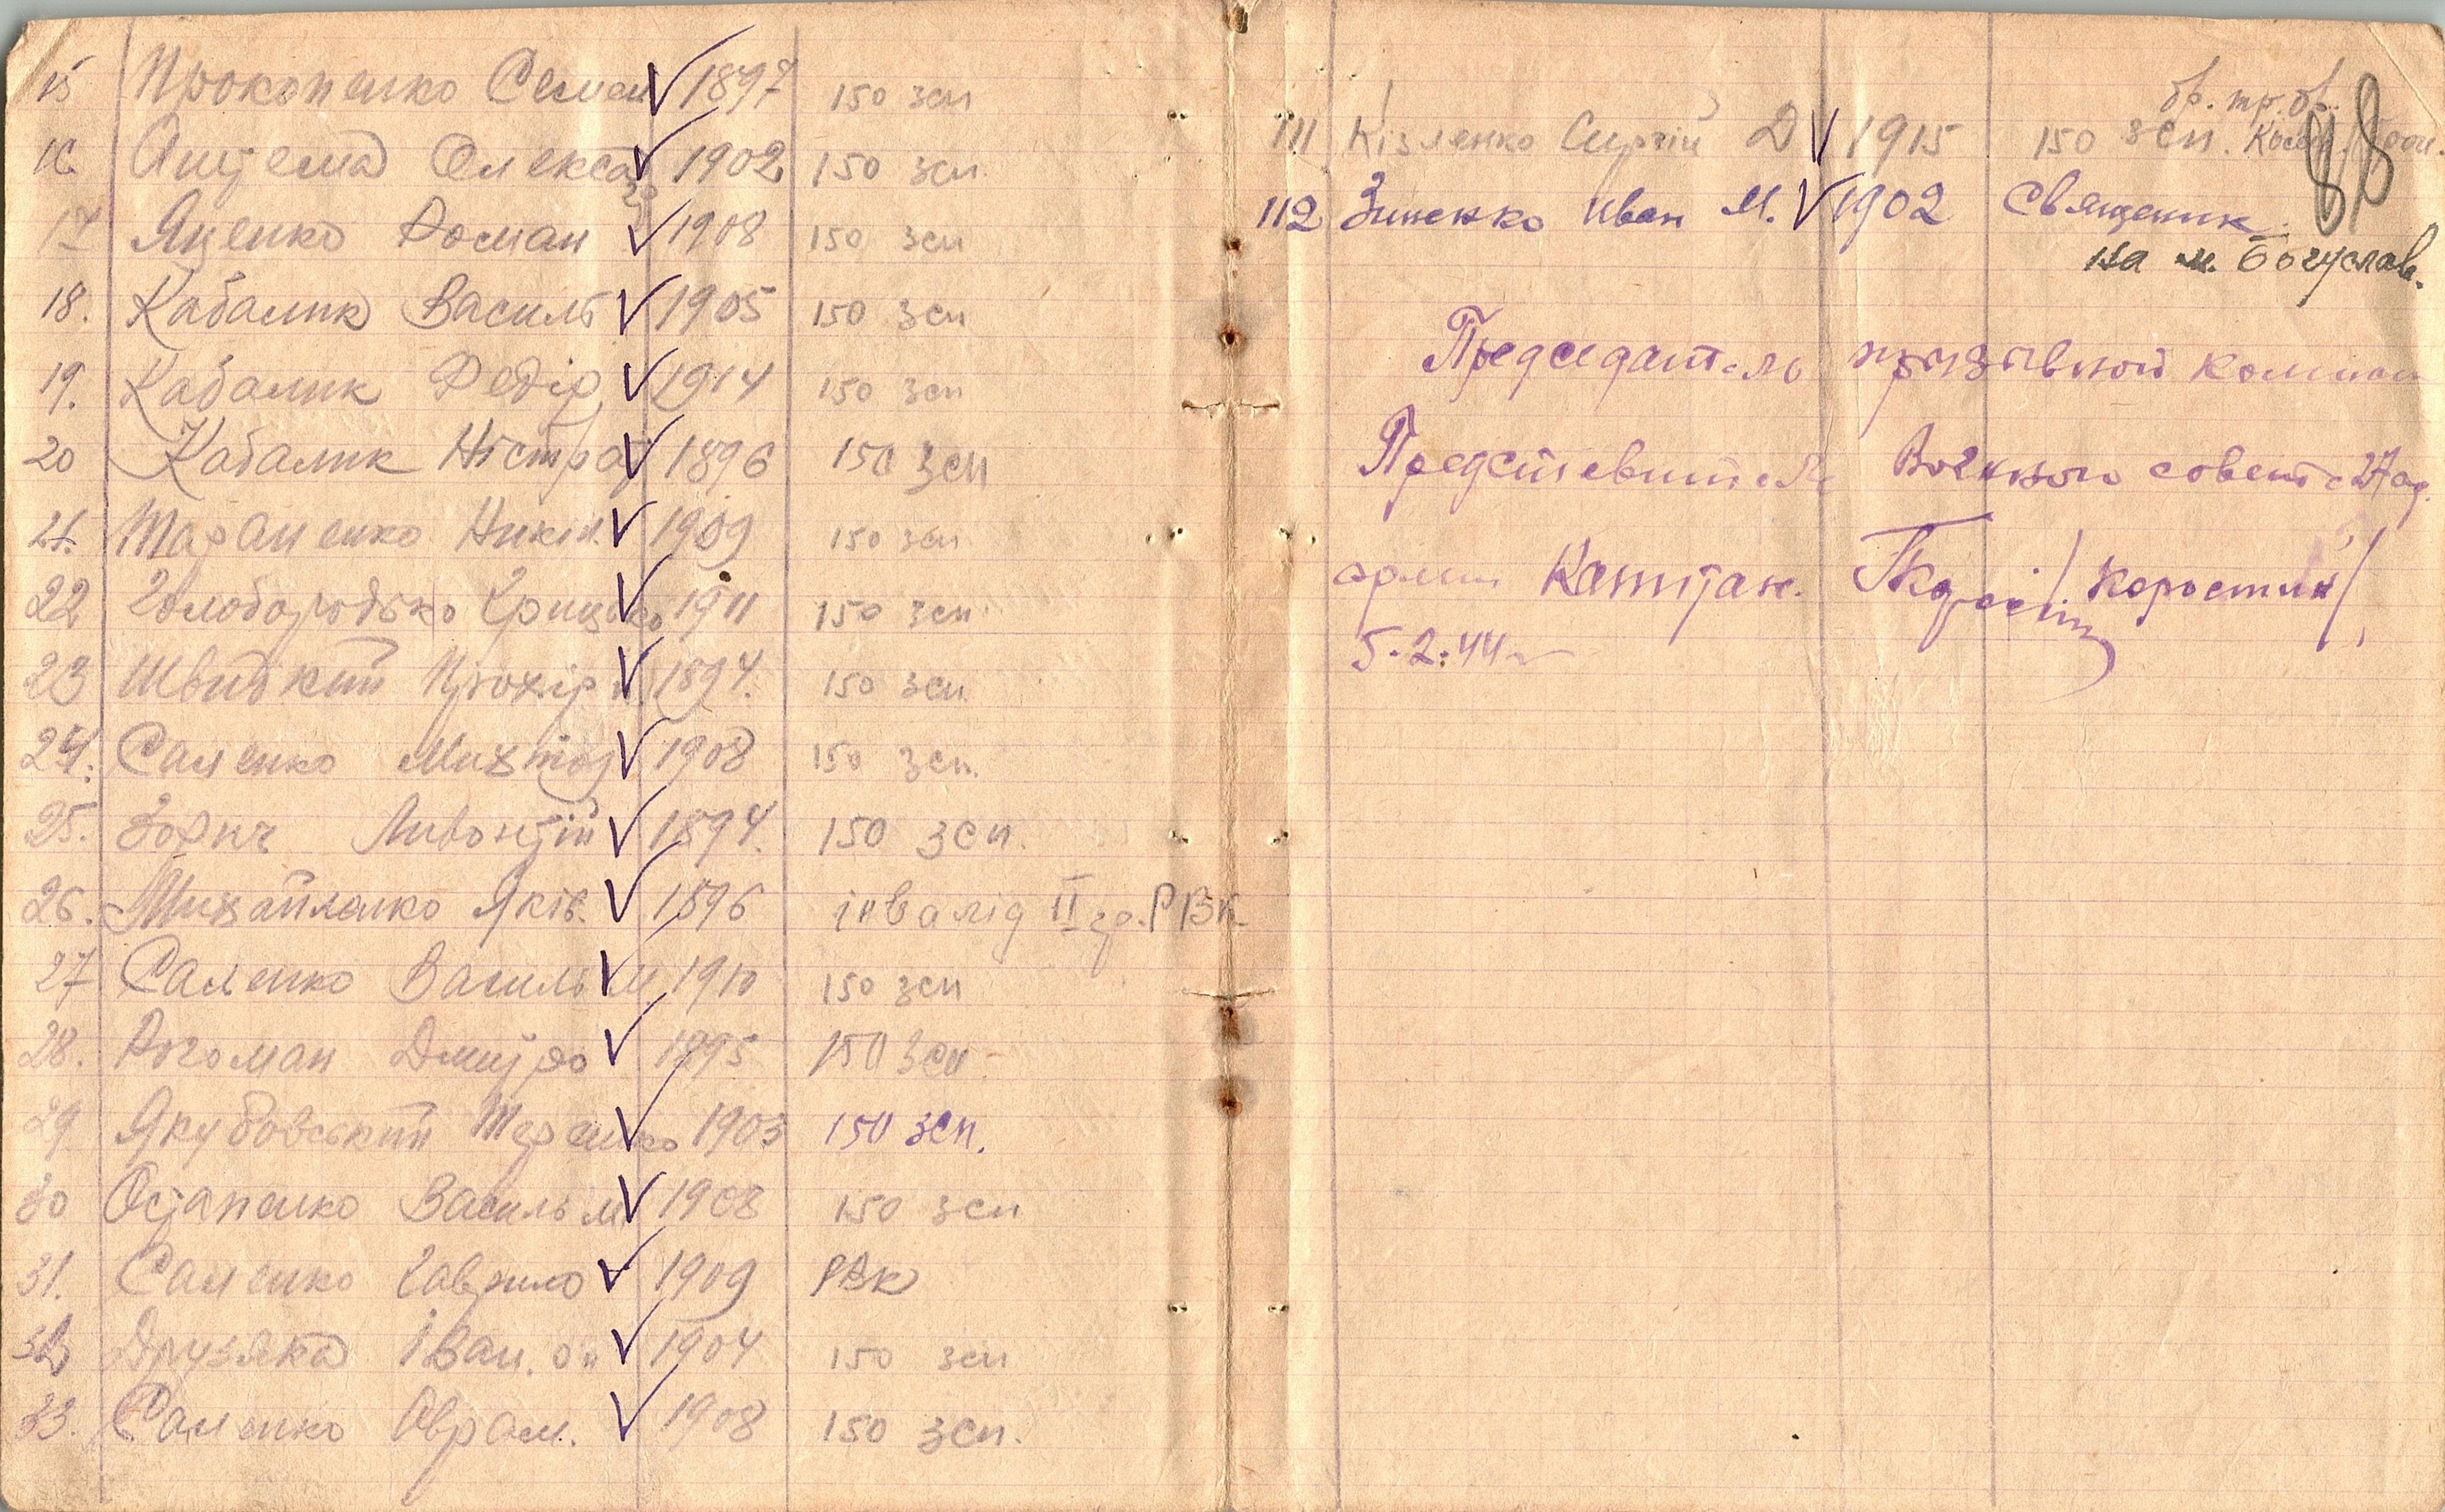 15 Прокопенко Семен 1897 150 зсп
16. Олекса 1902 150 зсп.
17 Яценко Роман 1908 150 зсп
18. Кабалик Василь 1905 150 зсп
19. Кабалик Федір 1914 150 зсп
20 Кабалик Ністрат 1896 150 зсп
21. Тараненко Никіп. 1909 150 зсп
22 Голобородько Грицько 1911 150 зсп.
23 Швидкий Прохір 1894. 150 зсп.
24. Саленко 1908 150 зсп.
25. Зорич Ливонтій 1894. 150 зсп.
26. Михайленко Яків. 1896 інвалід II гр. РВК
27 Саленко Василь М 1910 150 зсп
28. Рогоман Дмитро 1895 150 зсп
29 Якубовський Терешко 1903 150 зсп.
30 Остапенко Василь М 1908 150 зсп
31. Саленко Гаврило 1909 РВК
32 Друзяка Іван. 1904 150 зсп
33. Саленко Оврам. 1908 150 зсп.
88
бр. тр. бр.
111 Кізленко Сергій Д 1915 150 зсп.
112 Зиненко Иван М. 1902 Священик.
на м. Богуслав.
Председатель призывной
Представитель Военного совета 27
армии Капитан. /Коростин/,
5.2.44